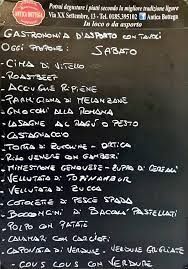 Potrai degustare i piatti secondo la migliore tradizione ligure
Via XX Settembre, 13 - Tel. 0185.395102 Antica Bottega
In loco o da asporto
ANTICA BOTTEGA
GASTRONOMIA D'ASPORTO CON TAVOLI
OGGI SABATO
- CIMA DI VITELLO
- ROASTBEEF
- ACCIUGHE RIPIENE
- PARMIGIANA DI MELANZANE
- GNOCCHI ALLA ROMANA
- LASAGNE AL RAGÙ O PESTO
- CASTAGNACCIO
- TORTA DI ZUCCHINE - ORTICA
- RISO VENERE CON GAMBERI
- MINESTRONE GENOVESE - ZUPPA DI CEREALI
- VELLUTATA DI TOPINAMBUR
- VELLUTATA DI ZUCCA
- COTOLETTE DI PESCE SPADA
- BOCCONCINI DI BACCALÀ PASTELLATI
- POLPO CON PATATE
- CALAMARI CON CARCIOFI
- CAPONATA DI VERDURE - VERDURE GRIGLIATE
- COUS COUS CON VERDURE